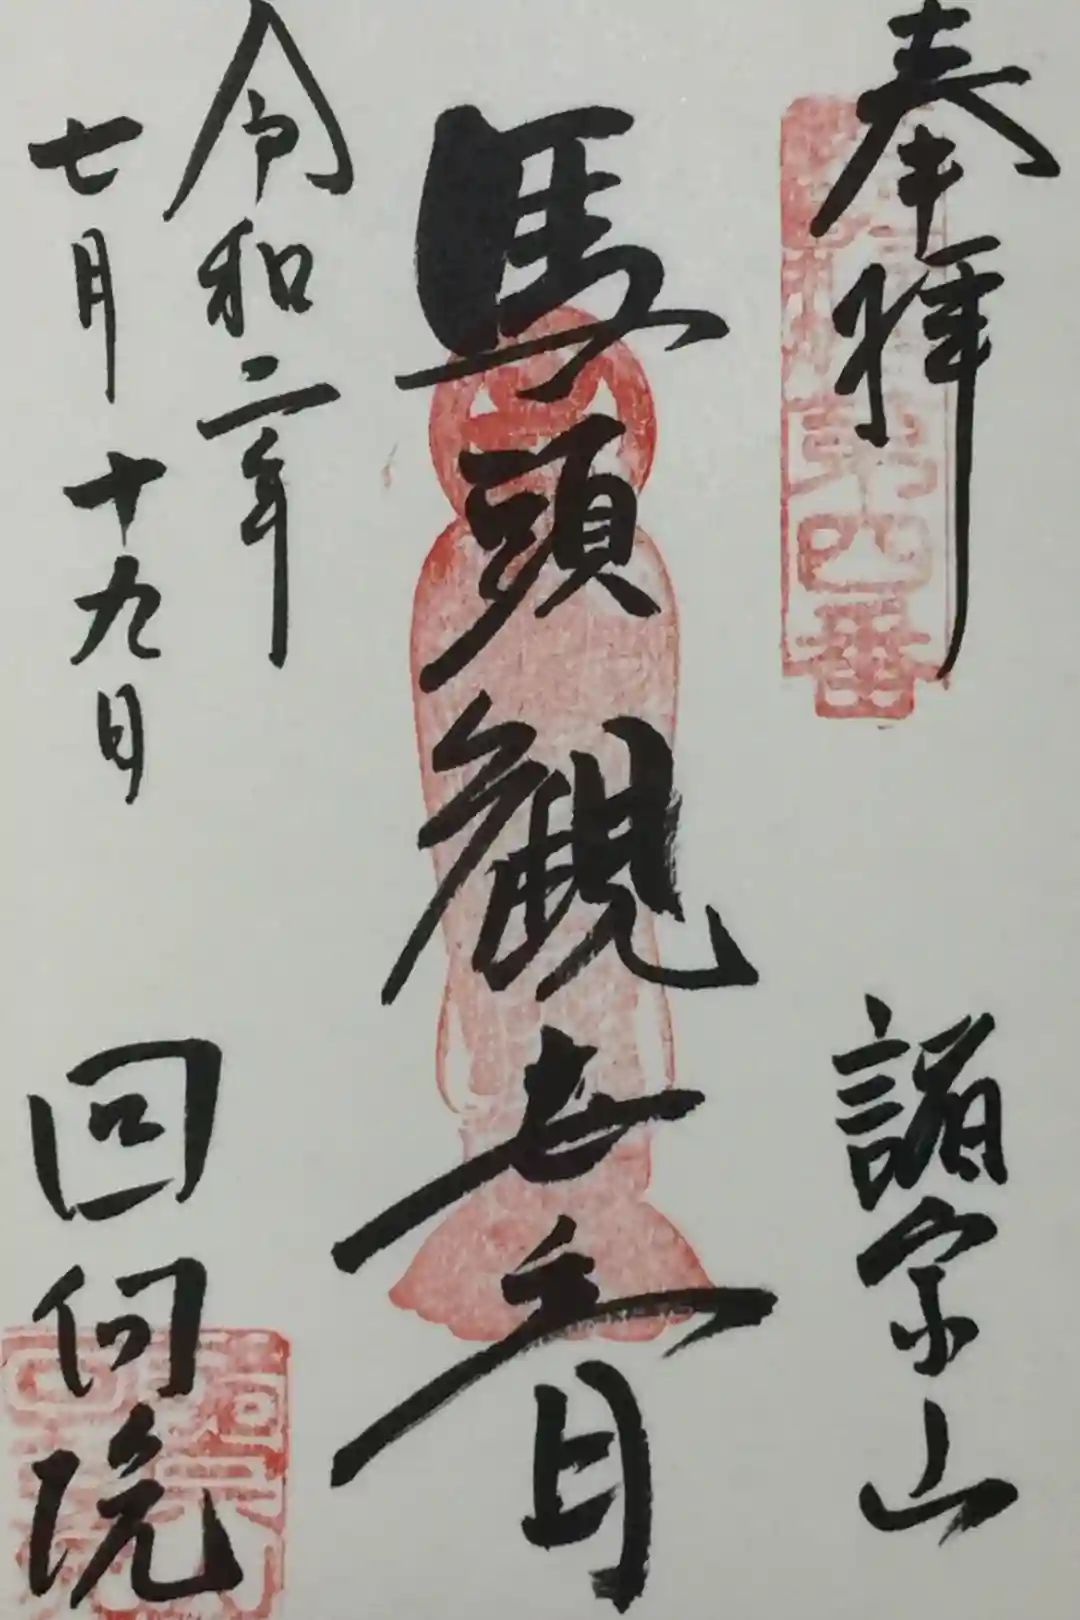 奉拝
第四番
諸宗山
馬頭観世音
令和二年
七月十九日
回向院